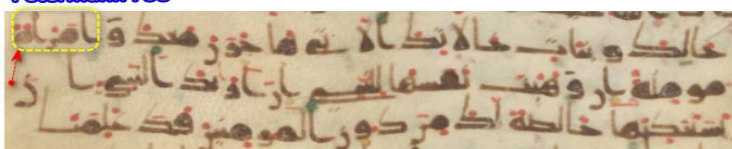 خالك وبنات خالاتك التى هاجرن معك وامراة
مومنة ان وهبت نفسها للنبى ان اراد النبى ان
يستنكحها خالصة لك من دون المومنين قد علمنا